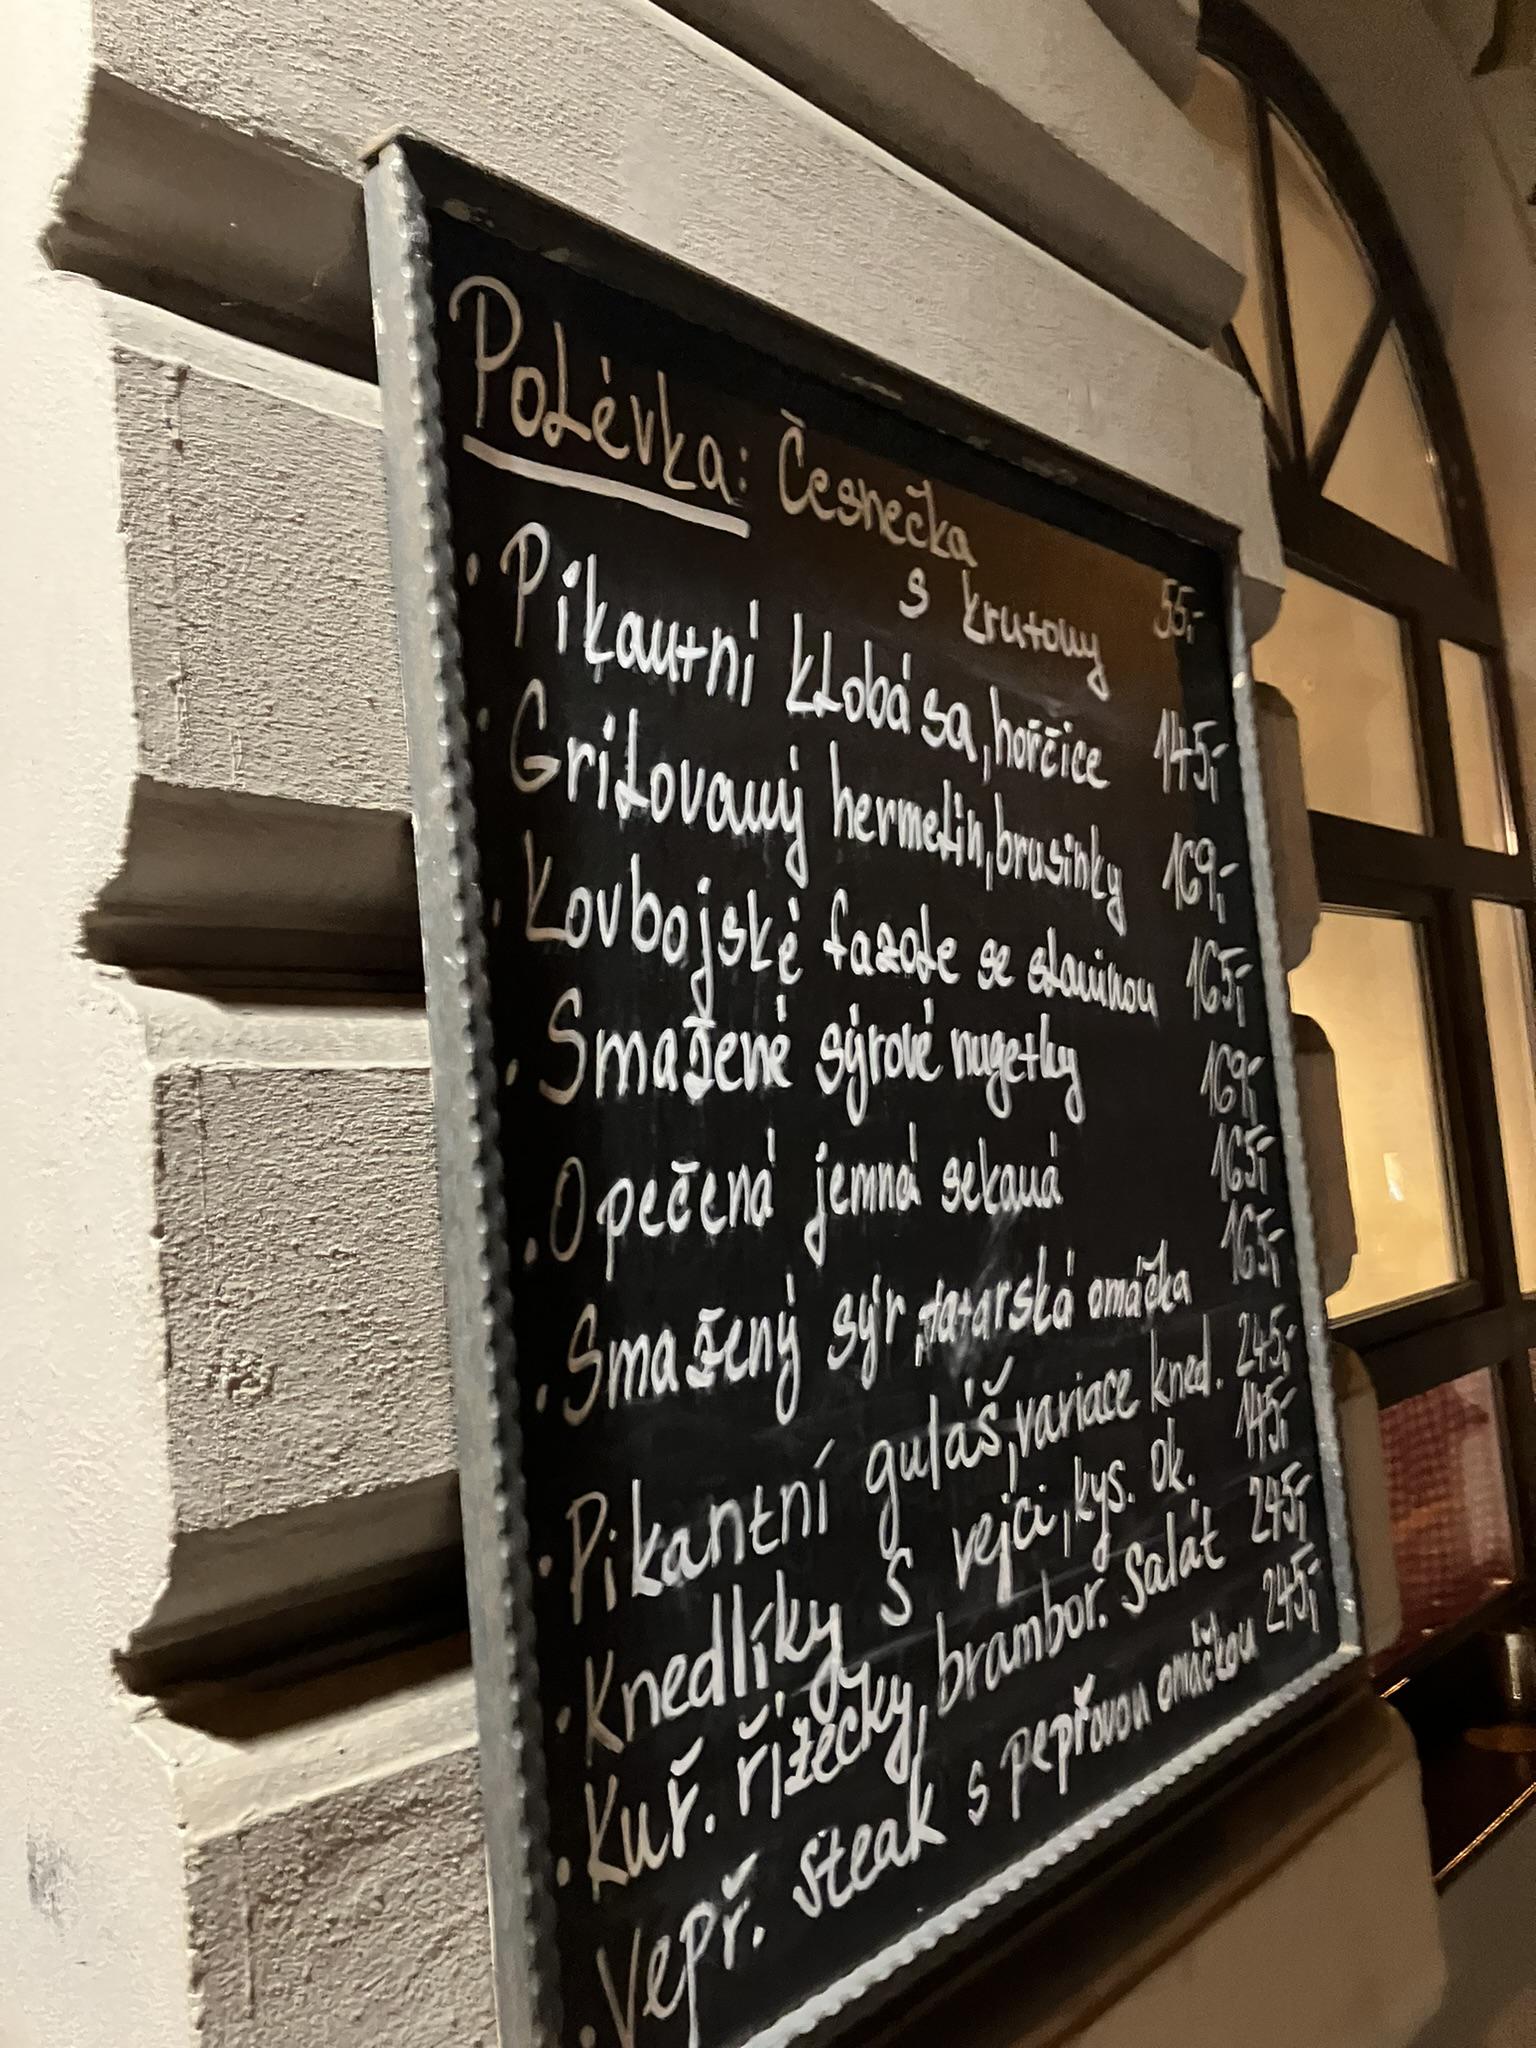 Polévka: Česnečka
s krutony 55,-
· Pikantní klobása, hořčice 145,-
· Grilovaný hermelín, brusinky 169,-
· Kovbojské fazole se slaninou 165,-
· Smažené sýrové nugetky 169,-
· Opečená jemná sekaná 165,-
· Smažený sýr, tatarská omáčka 165,-
· Pikantní guláš, variace kned. 245,-
· Knedlíky s vejci, kys. ok. 145,-
· Kuř. řízečky, brambor. salát 245,-
· Vepř. steak s pepřovou omáčkou 245,-